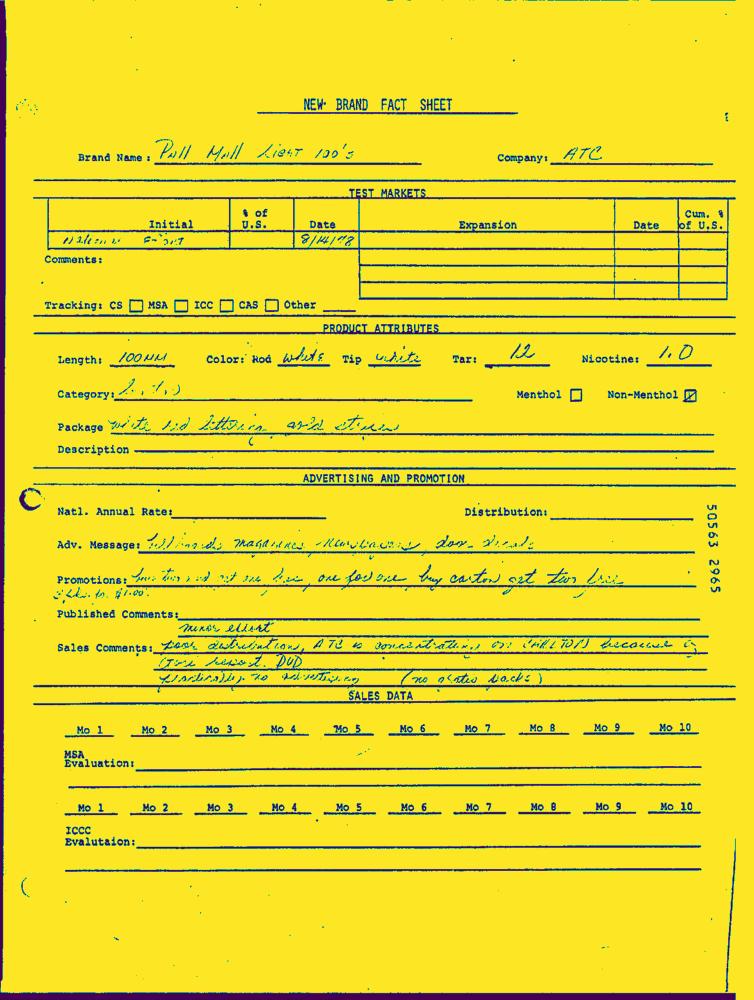 NEW BRAND FACT SHEET
Brand Name: Pall Mall Light 100's Company: ATC
TEST MARKETS
Initial % of U.S. Date Expansion Date Cum. % of U.S.
8/14/78
Comments:
Tracking: CS ☐ MSA ☐ ICC ☐ CAS ☐ Other
PRODUCT ATTRIBUTES
Length: 100MM Color: Rod white Tip white Tar: 12 Nicotine: 1.0
Category: Menthol ☐ Non-Menthol ☑
Package white red lettering and
Description
ADVERTISING AND PROMOTION
Natl. Annual Rate: Distribution:
50563 2965
Adv. Message: billboards magazines newspapers, door decals
Promotions: buy two and get one free, one for one buy carton get two free
for $1.00
Published Comments:
minor effort
Sales Comments: poor distribution, ATC is concentrating on CARLTON because of
report. DUD
Practically no advertising (no states packs)
SALES DATA
Mo 1 Mo 2 Mo 3 Mo 4 Mo 5 Mo 6 Mo 7 Mo 8 Mo 9 Mo 10
MSA
Evaluation:
Mo 1 Mo 2 Mo 3 Mo 4 Mo 5 Mo 6 Mo 7 Mo 8 Mo 9 Mo 10
ICCC
Evalutaion: